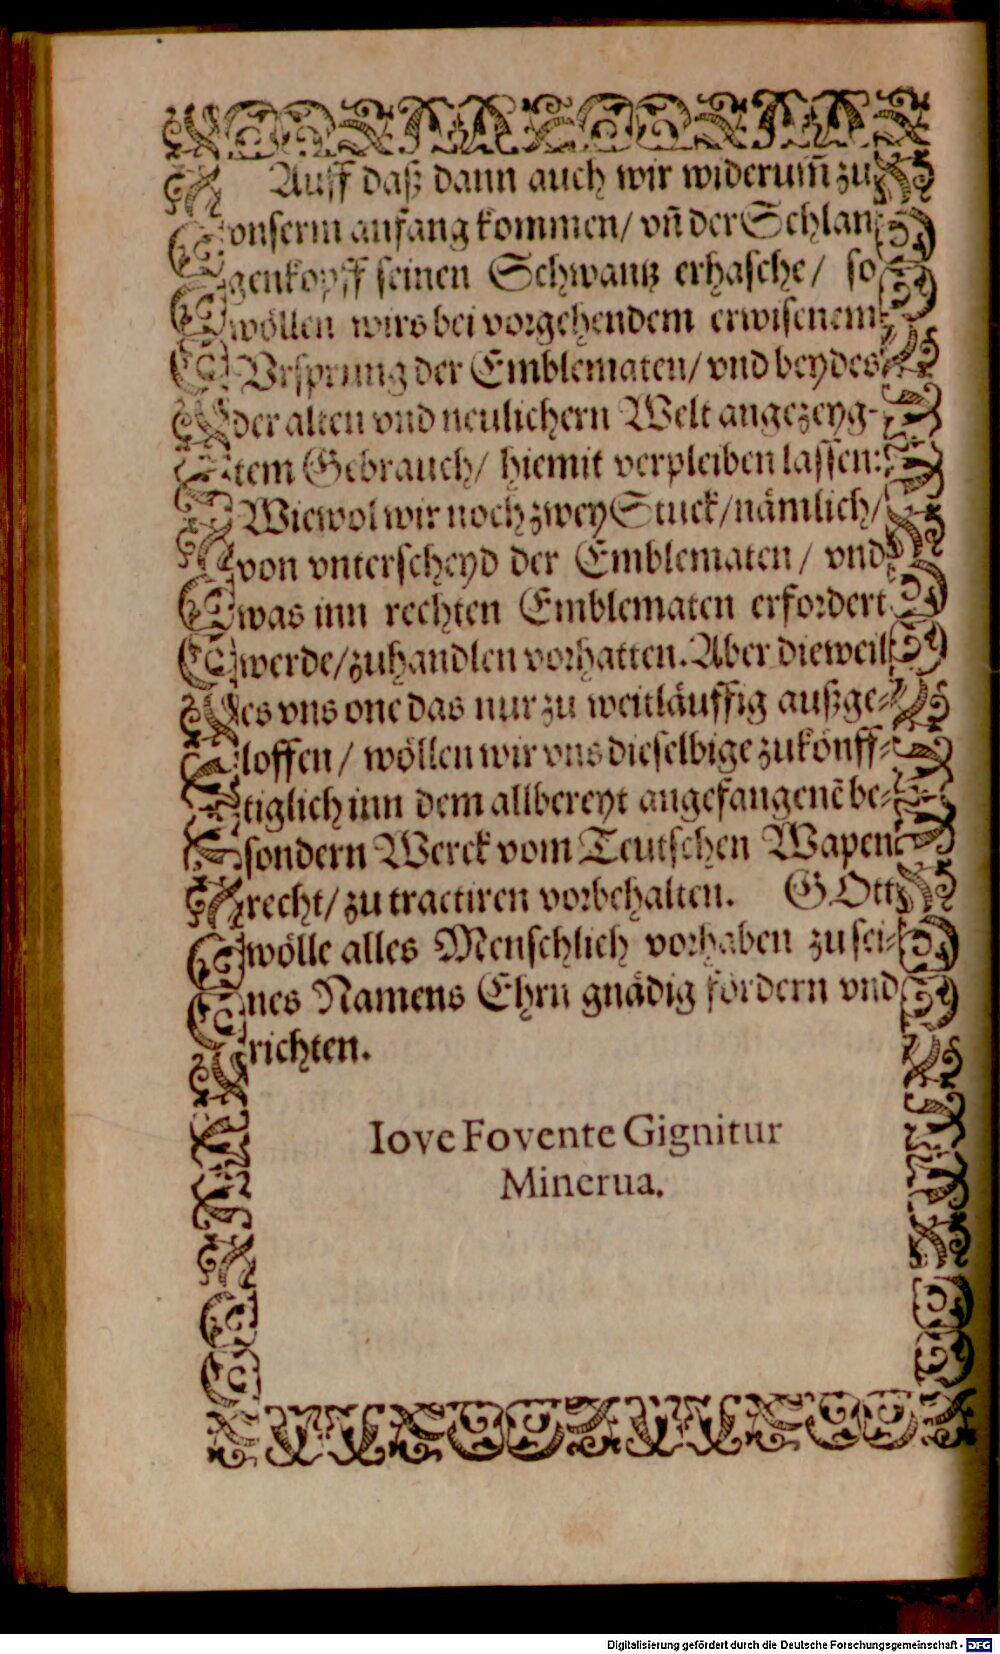 Auff daß dann auch wir widerum̃ zu
onserm anfang kommen/ vñ der Schlan
genkopff seinen Schwantz erhasche/ so
wöllen wirs bei vorgehendem erwisenem
Vrsprung der Emblematen/ vnd beydes
der alten vnd neulichern Welt angezeyg-
tem Gebrauch/ hiemit verpleiben lassen:
Wiewol wir noch zwey Stuck/ nämlich/
von vnterscheyd der Emblematen/ vnd
was inn rechten Emblematen erfordert
werde/ zuhandlen vorhatten. Aber dieweil
es vns one das nur zu weitläuffig außge-
loffen/ wöllen wir vns dieselbige zukönff-
tiglich inn dem allbereyt angefangenẽ be-
sondern Werck vom Teutschen Wapen
recht/ zu tractiren vorbehalten. GOtt
wölle alles Menschlich vorhaben zu sei-
nes Namens Ehrn gnädig fördern vnd
richten.
Iove Fovente Gignitur
Minerua.
Digitalisierung gefördert durch die Deutsche Forschungsgemeinschaft - DFG